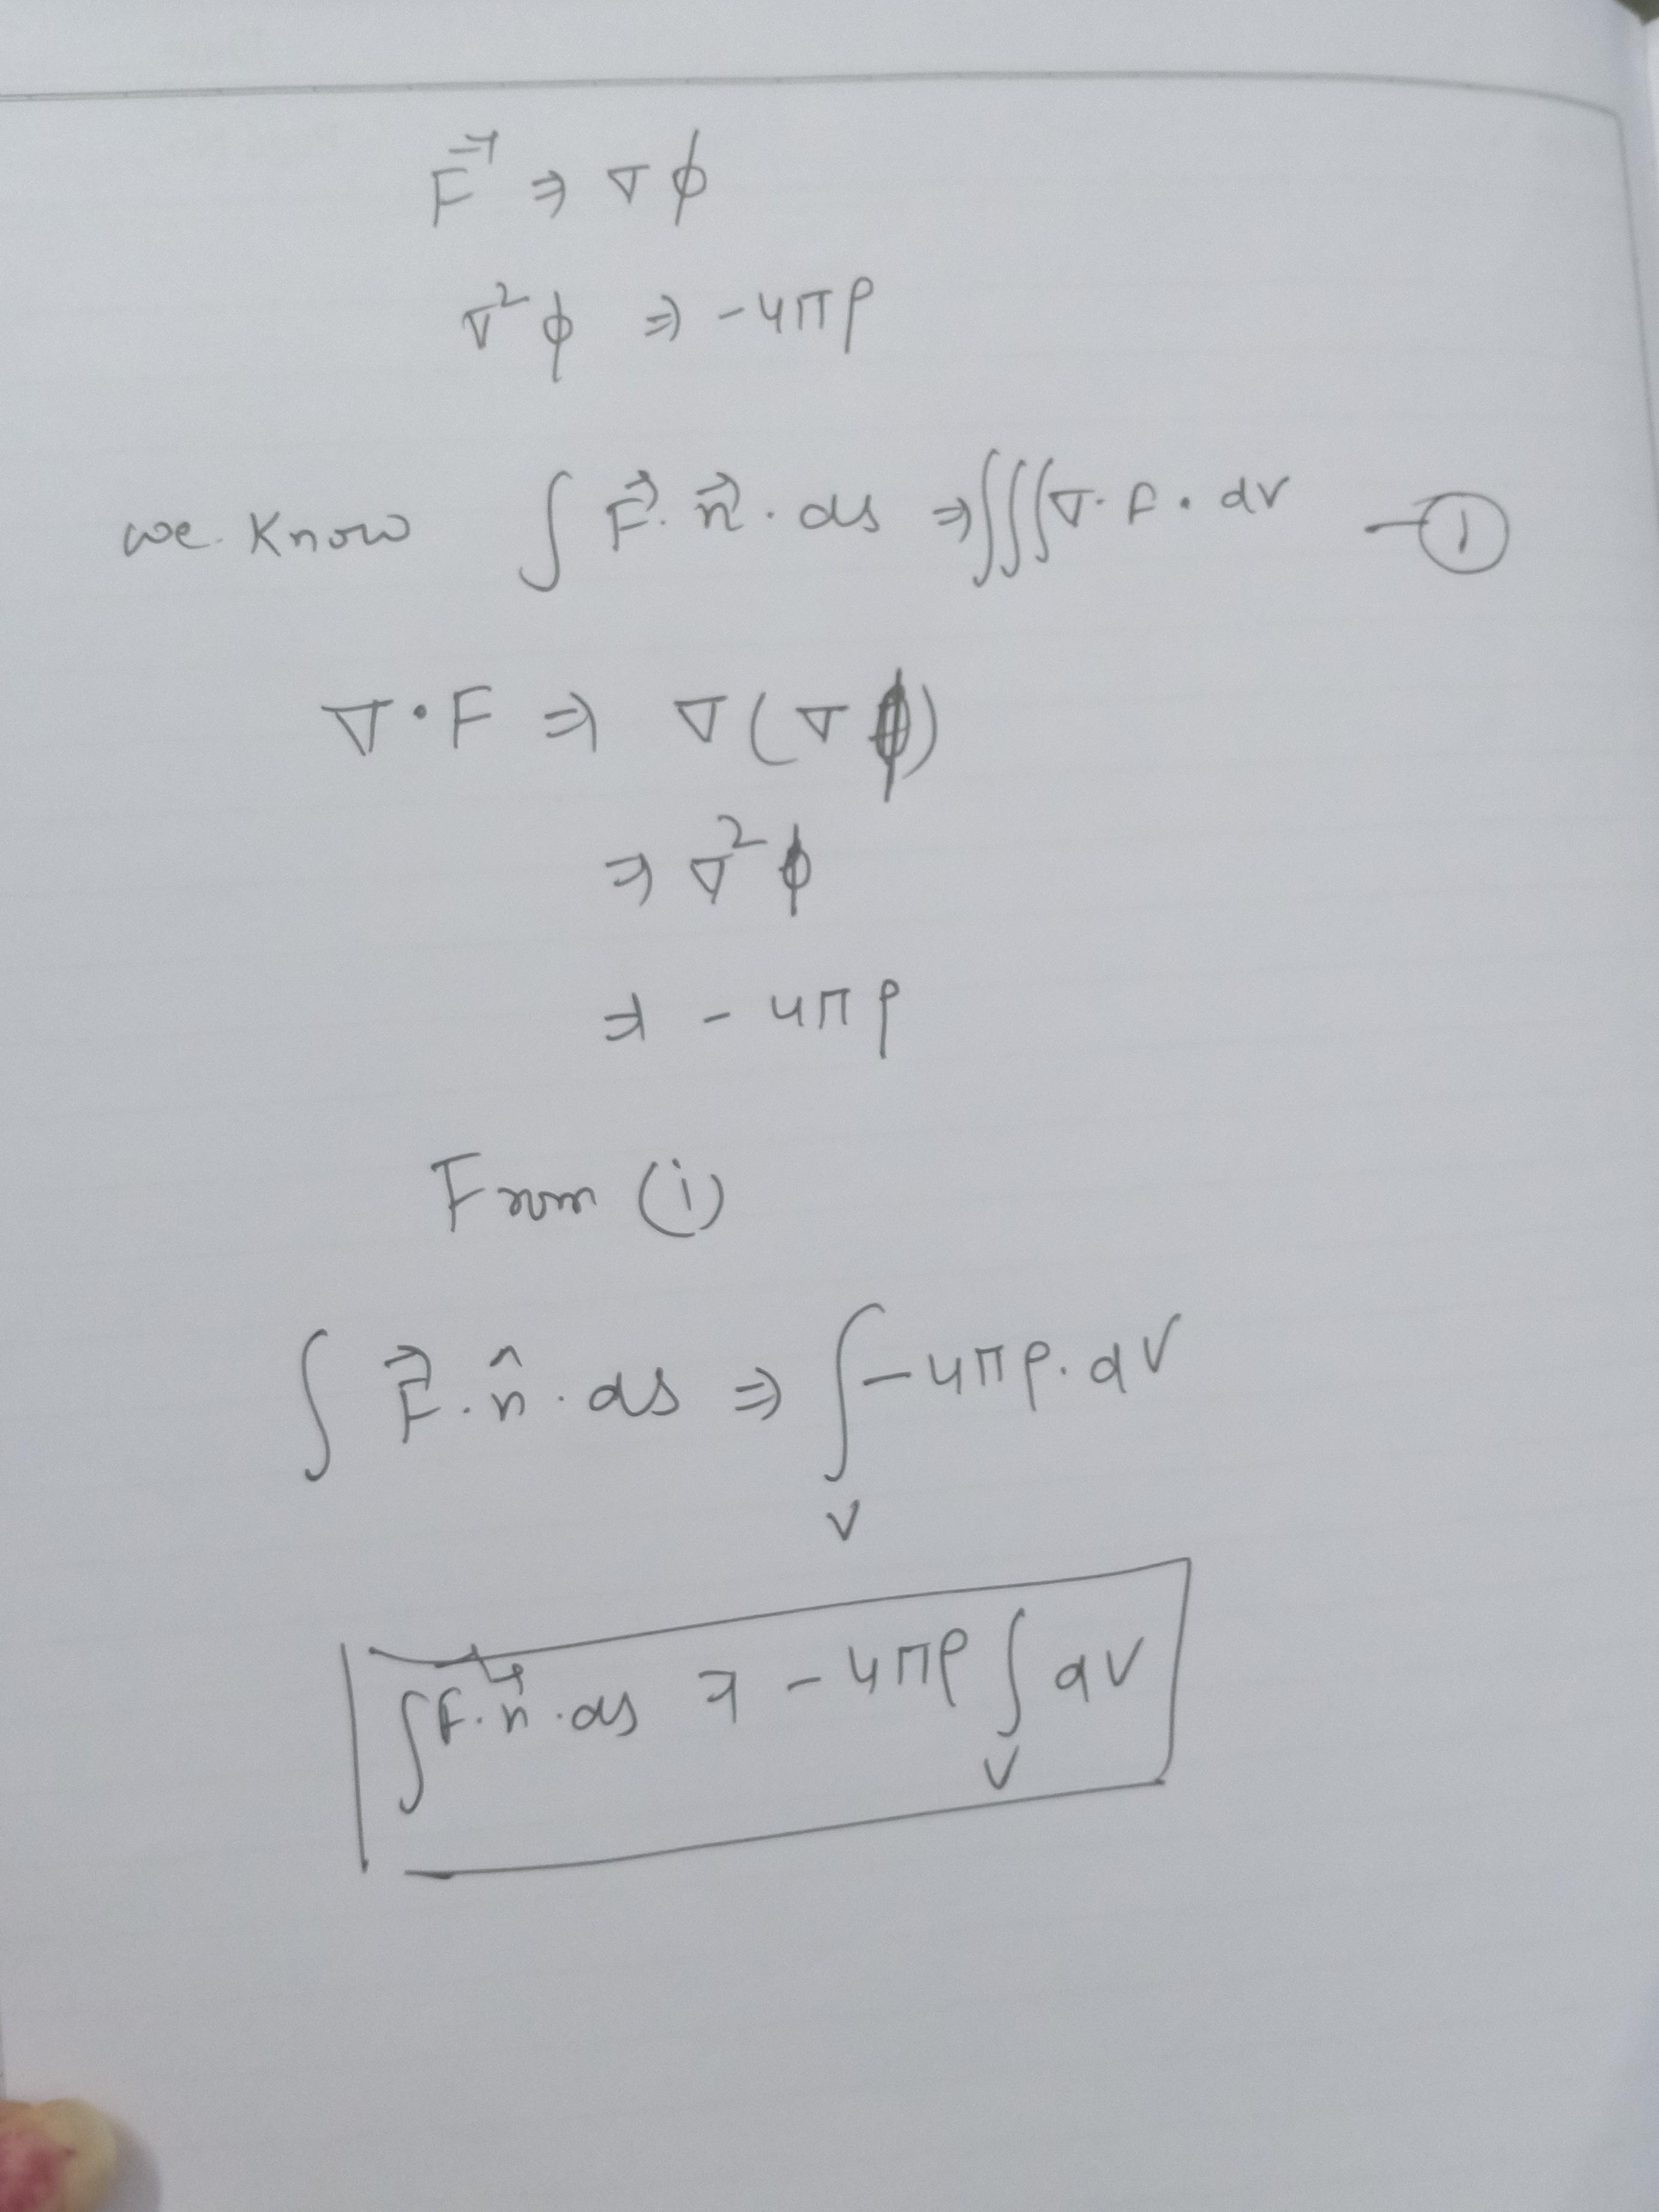 F⃗ ⇒ ∇ϕ
∇²ϕ ⇒ -4πρ
we know ∫ F⃗. n⃗ . ds ⇒ ∫∫∫ ∇. F . dv — ①
∇ • F ⇒ ∇(∇ϕ)
⇒ ∇²ϕ
⇒ - 4πρ
From (i)
∫ F⃗ . n̂ . ds ⇒ ∫ -4πρ. dV
V
∫ F . n⃗ . ds ⇒ - 4πρ ∫ dV
V